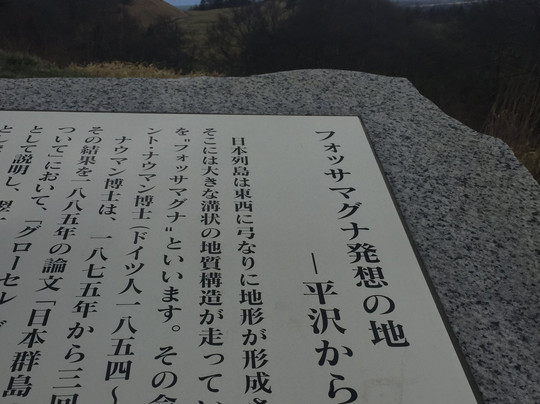 フォッサマグナ発想の地
―平沢から
日本列島は東西に弓なりに地形が形成さ
そこには大きな溝状の地質構造が走ってい
を"フォッサマグナ"といいます。その命
ント・ナウマン博士(ドイツ人一八五四～
ナウマン博士は、一八七五年から三回
その結果を一八八五年の論文「日本群島
ついて」において、「グローセル
として説明し、
とし